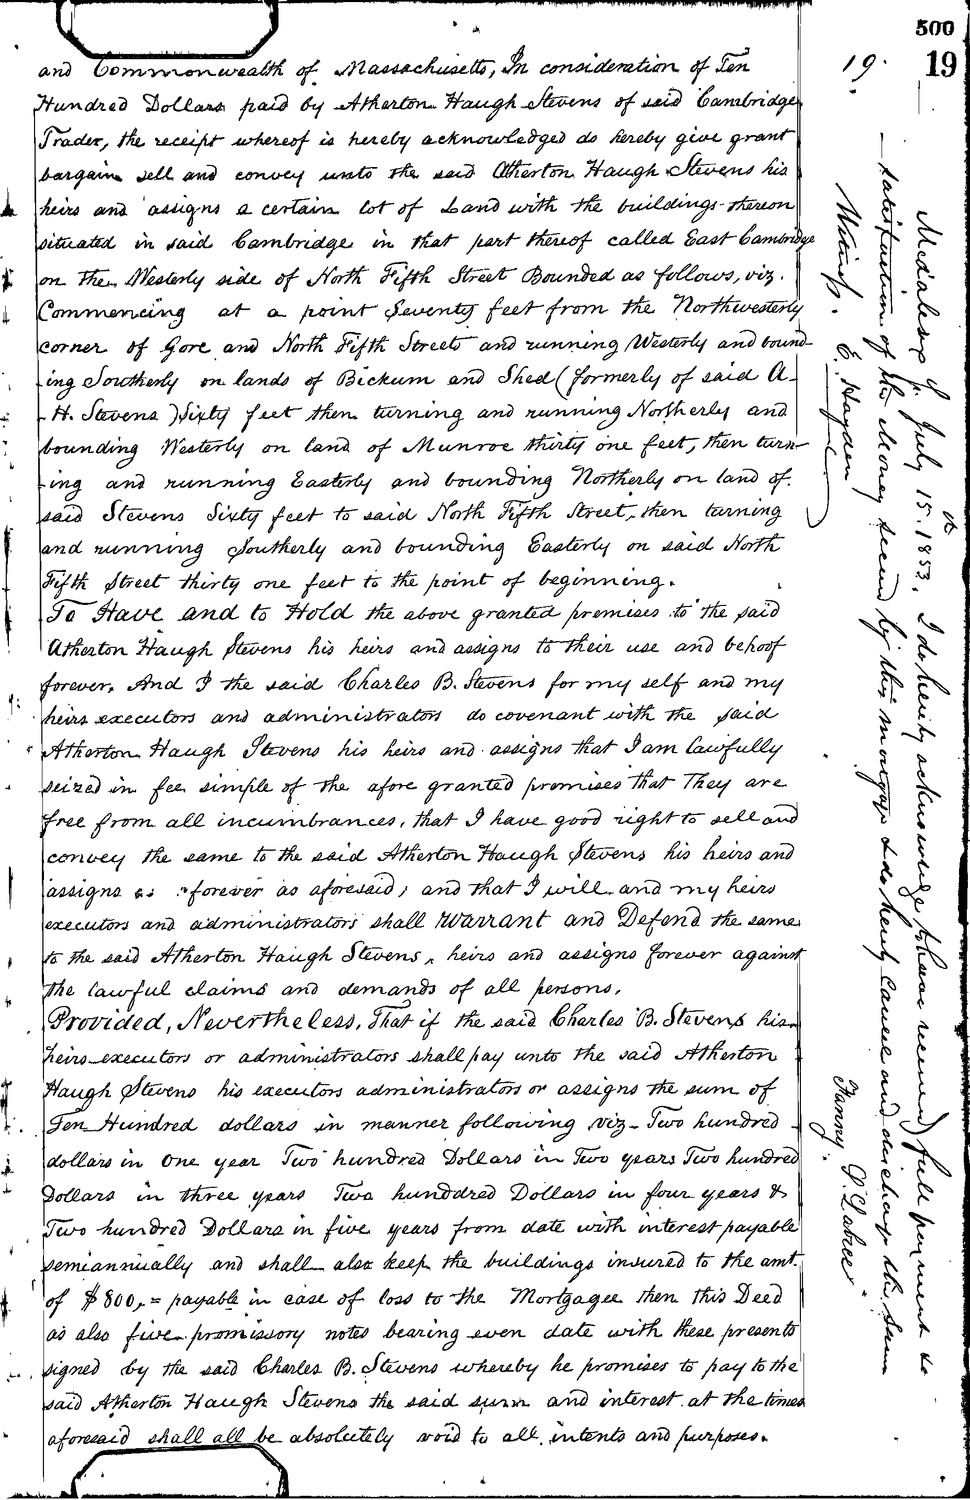 500
19
19.
and Commonwealth of Massachusetts, In consideration of Ten
Hundred Dollars paid by Atherton Haugh Stevens of said Cambridge
Trader, the receipt whereof is hereby acknowledged do hereby give grant
bargain sell and convey unto the said Atherton Haugh Stevens his
heirs and assigns a certain lot of Land with the buildings thereon
situated in said Cambridge in that part thereof called East Cambridge
on the Westerly side of North Fifth Street Bounded as follows, viz.
Commencing at a point Seventy feet from the Northwesterly
corner of Gore and North Fifth Streets and running Westerly and bound-
-ing Southerly on lands of Bickum and Shed (formerly of said A-
-H. Stevens) Sixty feet then turning and running Northerly and
bounding Westerly on land of Munroe thirty one feet, then turn-
-ing and running Easterly and bounding Northerly on land of
said Stevens Sixty feet to said North Fifth Street, then turning
and running Southerly and bounding Easterly on said North
Fifth Street thirty one feet to the point of beginning.
To Have and to Hold the above granted premises to the said
Atherton Haugh Stevens his heirs and assigns to their use and behoof
forever. And I the said Charles B. Stevens for my self and my
heirs executors and administrators do covenant with the said
Atherton Haugh Stevens his heirs and assigns that I am lawfully
seized in fee simple of the afore granted premises that They are
free from all incumbrances, that I have good right to sell and
convey the same to the said Atherton Haugh Stevens his heirs and
assigns forever as aforesaid, and that I will and my heirs
executors and administrators shall Warrant and Defend the same
to the said Atherton Haugh Stevens, heirs and assigns forever against
the lawful claims and demands of all persons.
Provided, Nevertheless, That if the said Charles B. Stevens his
heirs executors or administrators shall pay unto the said Atherton
Haugh Stevens his executors administrators or assigns the sum of
Ten Hundred dollars in manner following viz- Two hundred
dollars in One year Two hundred Dollars in Two years Two hundred
Dollars in three years Two hunddred Dollars in four years &
Two hundred Dollars in five years from date with interest payable
semiannually and shall also keep the buildings insured to the amt.
of $800,= payable in case of loss to the Mortgagee then this Deed
as also five promissory notes bearing even date with these presents
signed by the said Charles B. Stevens whereby he promises to pay to the
said Atherton Haugh Stevens the said sum and interest at the times
aforesaid shall all be absolutely void to all intents and purposes.
Middlesex ss. July 15th. 1853. I do hereby acknowledge to have received full payment &
satisfaction of the Money secured by this mortgage & do hereby cancel and discharge the same
Witness. E. Hayden
Fanny